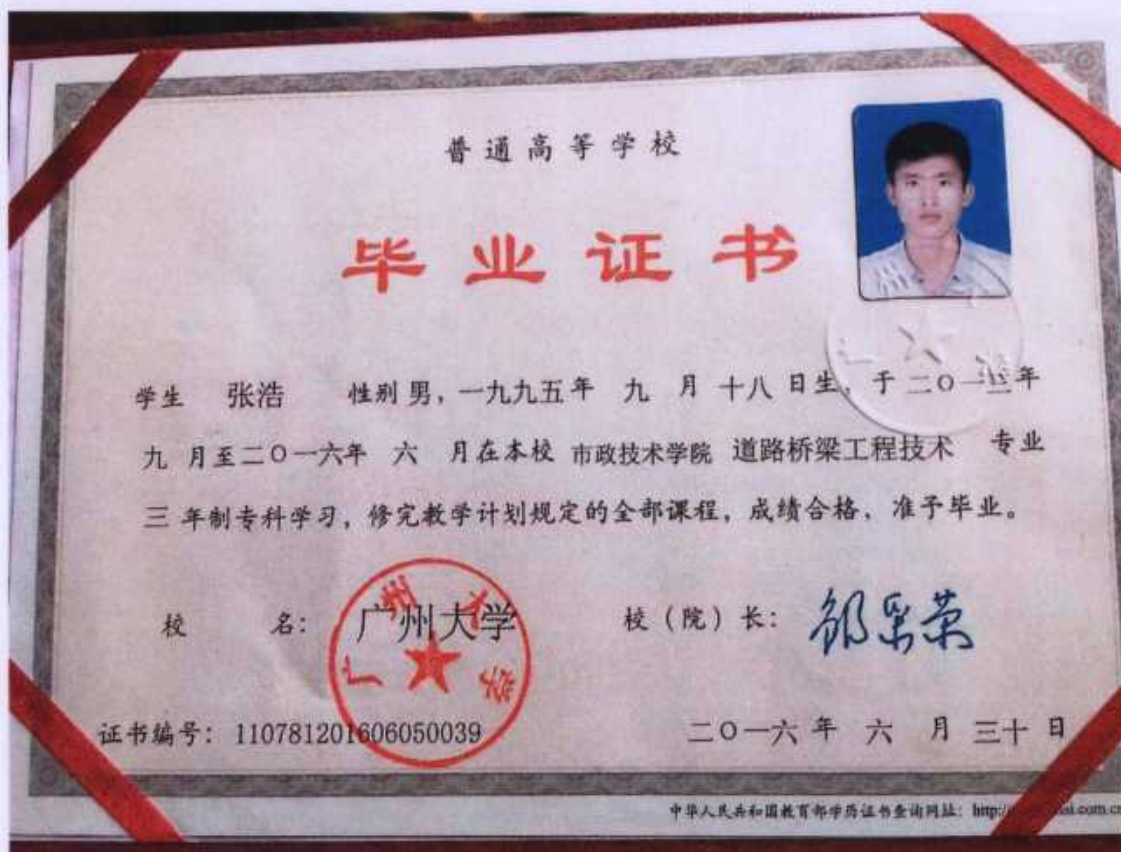 普通高等学校
毕业证书
学生 张浩 性别 男，一九九五年 九 月 十八 日生，于二〇一三年
九 月至二〇一六年 六 月在本校 市政技术学院 道路桥梁工程技术 专业
三 年制专科学习，修完教学计划规定的全部课程，成绩合格，准予毕业。
校 名： 广州大学 校（院）长：
广州大学
证书编号：110781201606050039 二〇一六年 六 月 三十 日
中华人民共和国教育部学历证书查询网址：http://